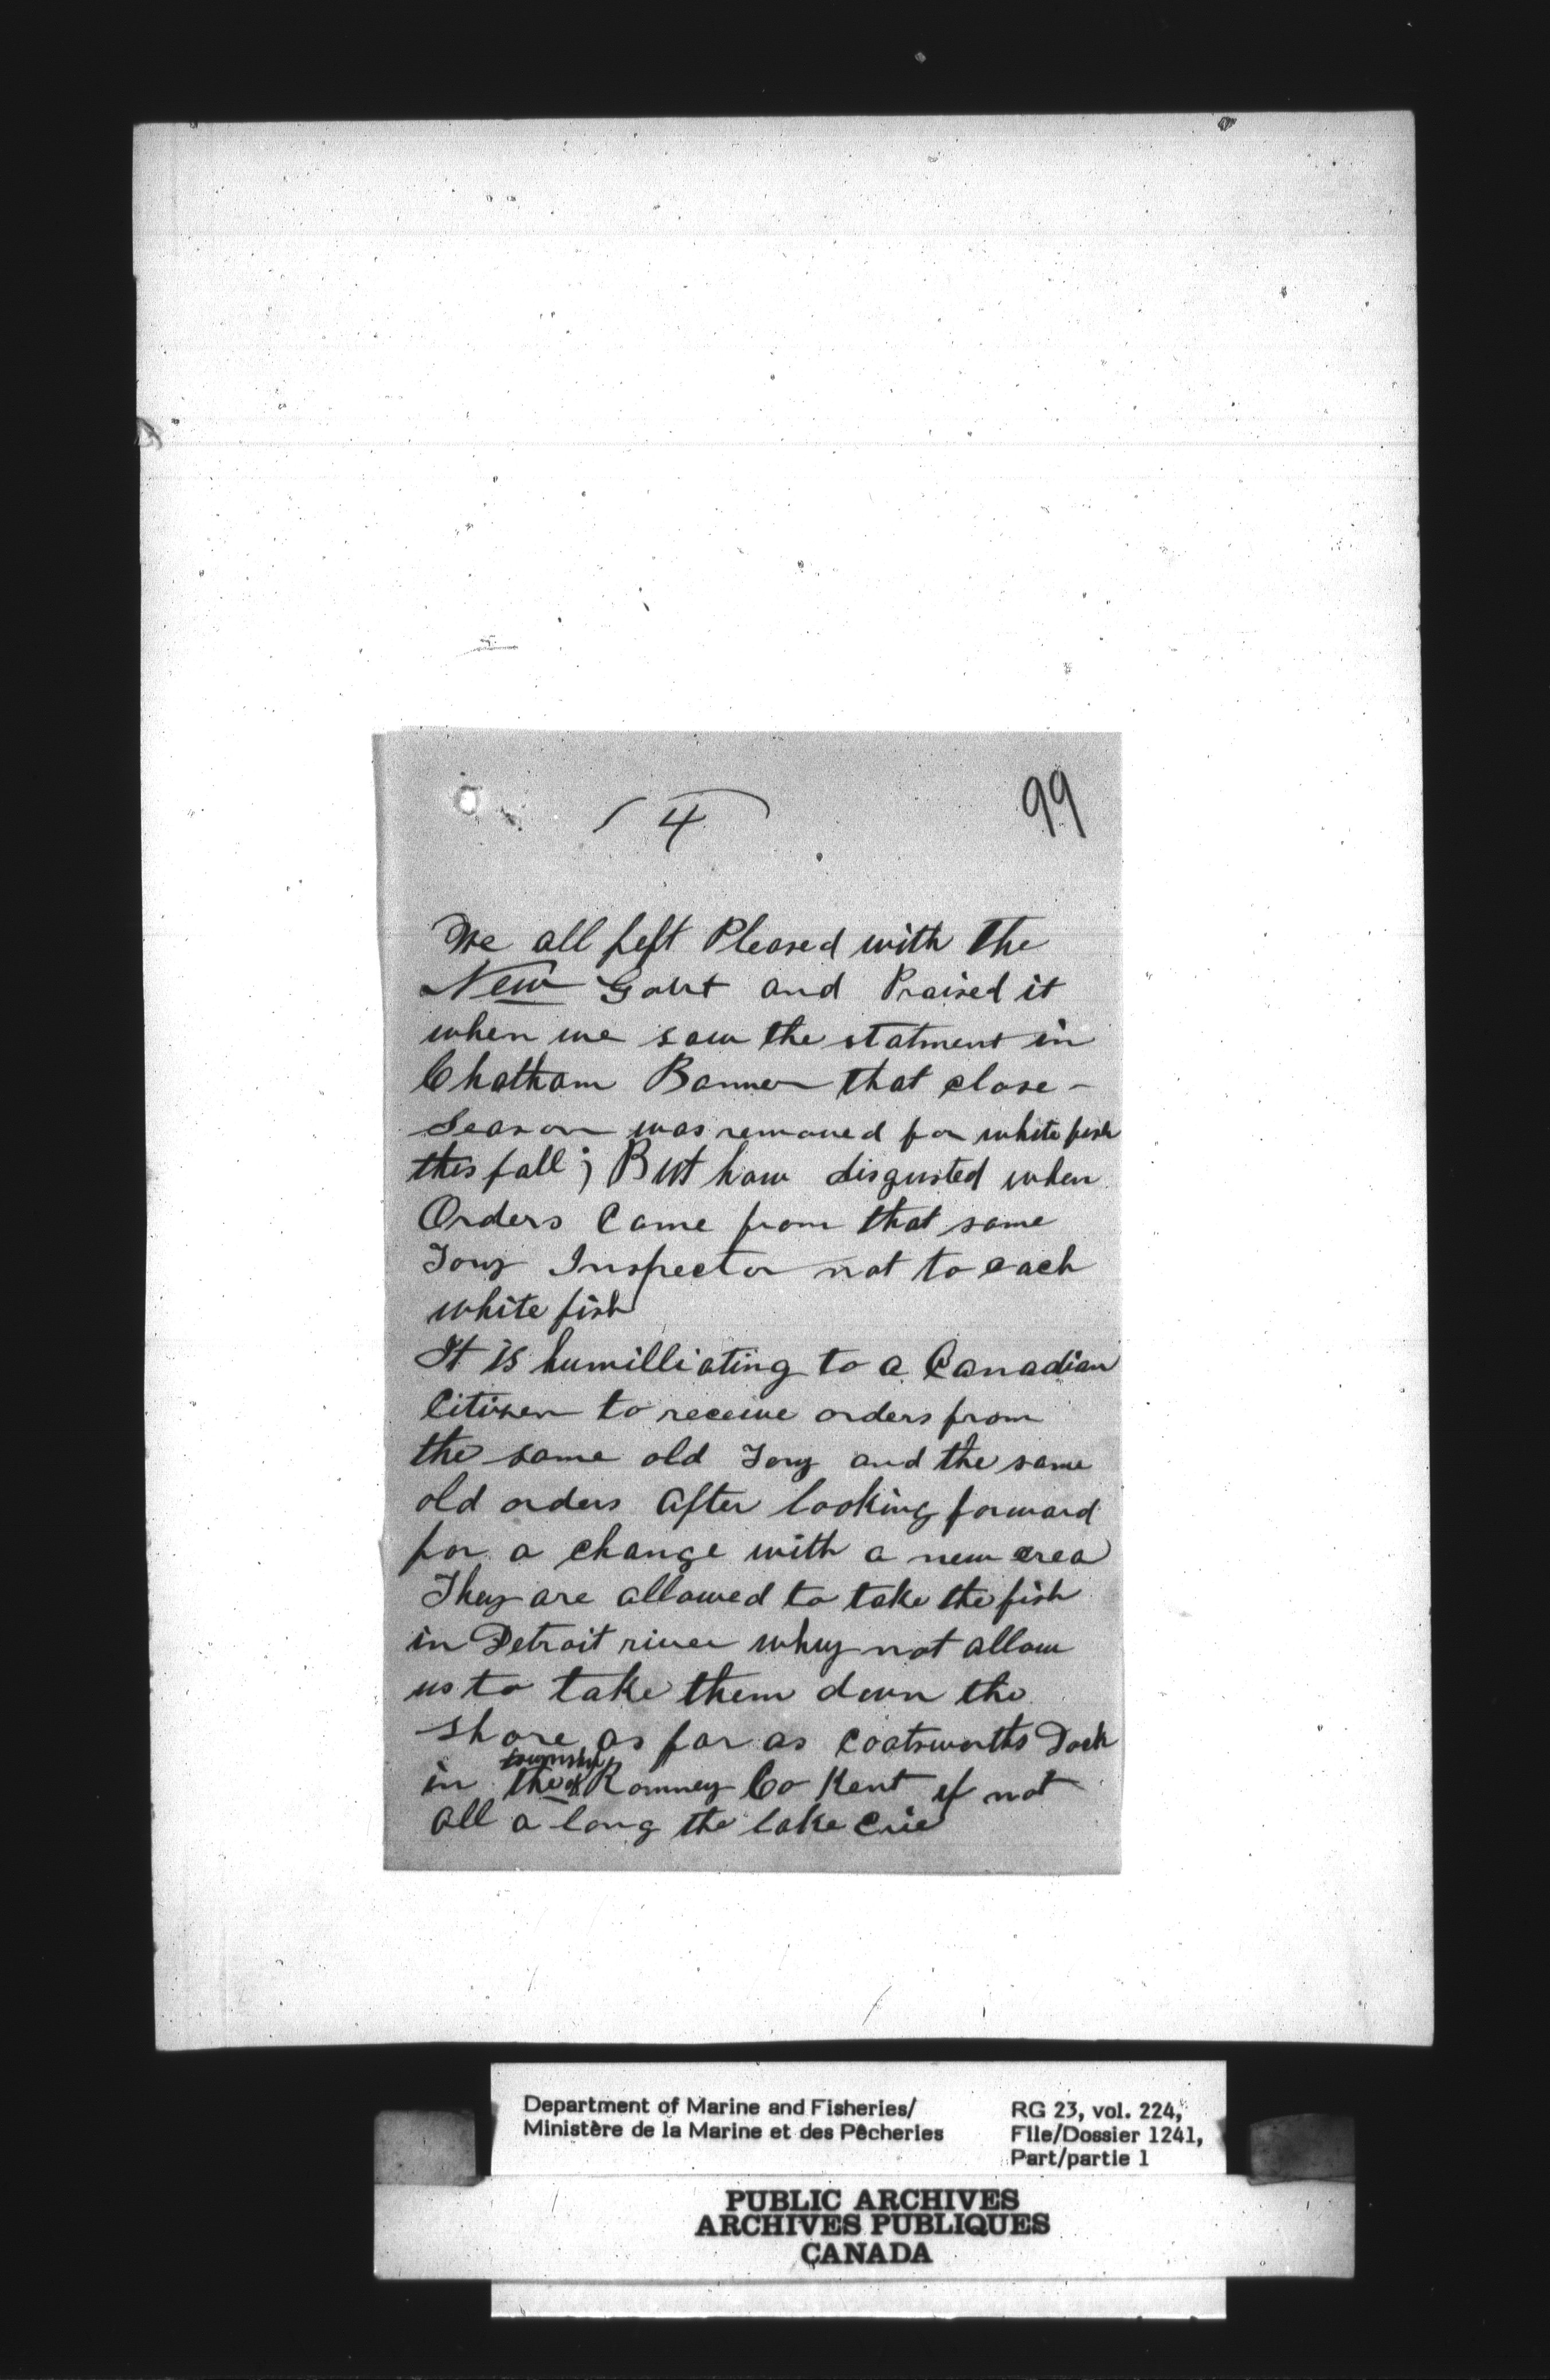 4
99
We all felt Pleased with the
New Govt and Praised it
when we saw the statment in
Chatham Banner that close -
Season was removed for white fish
this fall ; But how disgusted when
Orders Came from that same
Tory Inspector not to cach
white fish
It is humilliating to a Canadian
Citizen to receive orders from
the same old Tory and the same
old orders after looking forward
for a change with a new erea
They are allowed to take the fish
in Detroit river why not allow
us to take them down the
shore as far as Coatsworths Dock
township
in the of Romney Co Kent if not
all a long the lake Erie
Department of Marine and Fisheries/
Ministère de la Marine et des Pêcheries
RG 23, vol. 224,
File/Dossier 1241,
Part/partie 1
PUBLIC ARCHIVES
ARCHIVES PUBLIQUES
CANADA